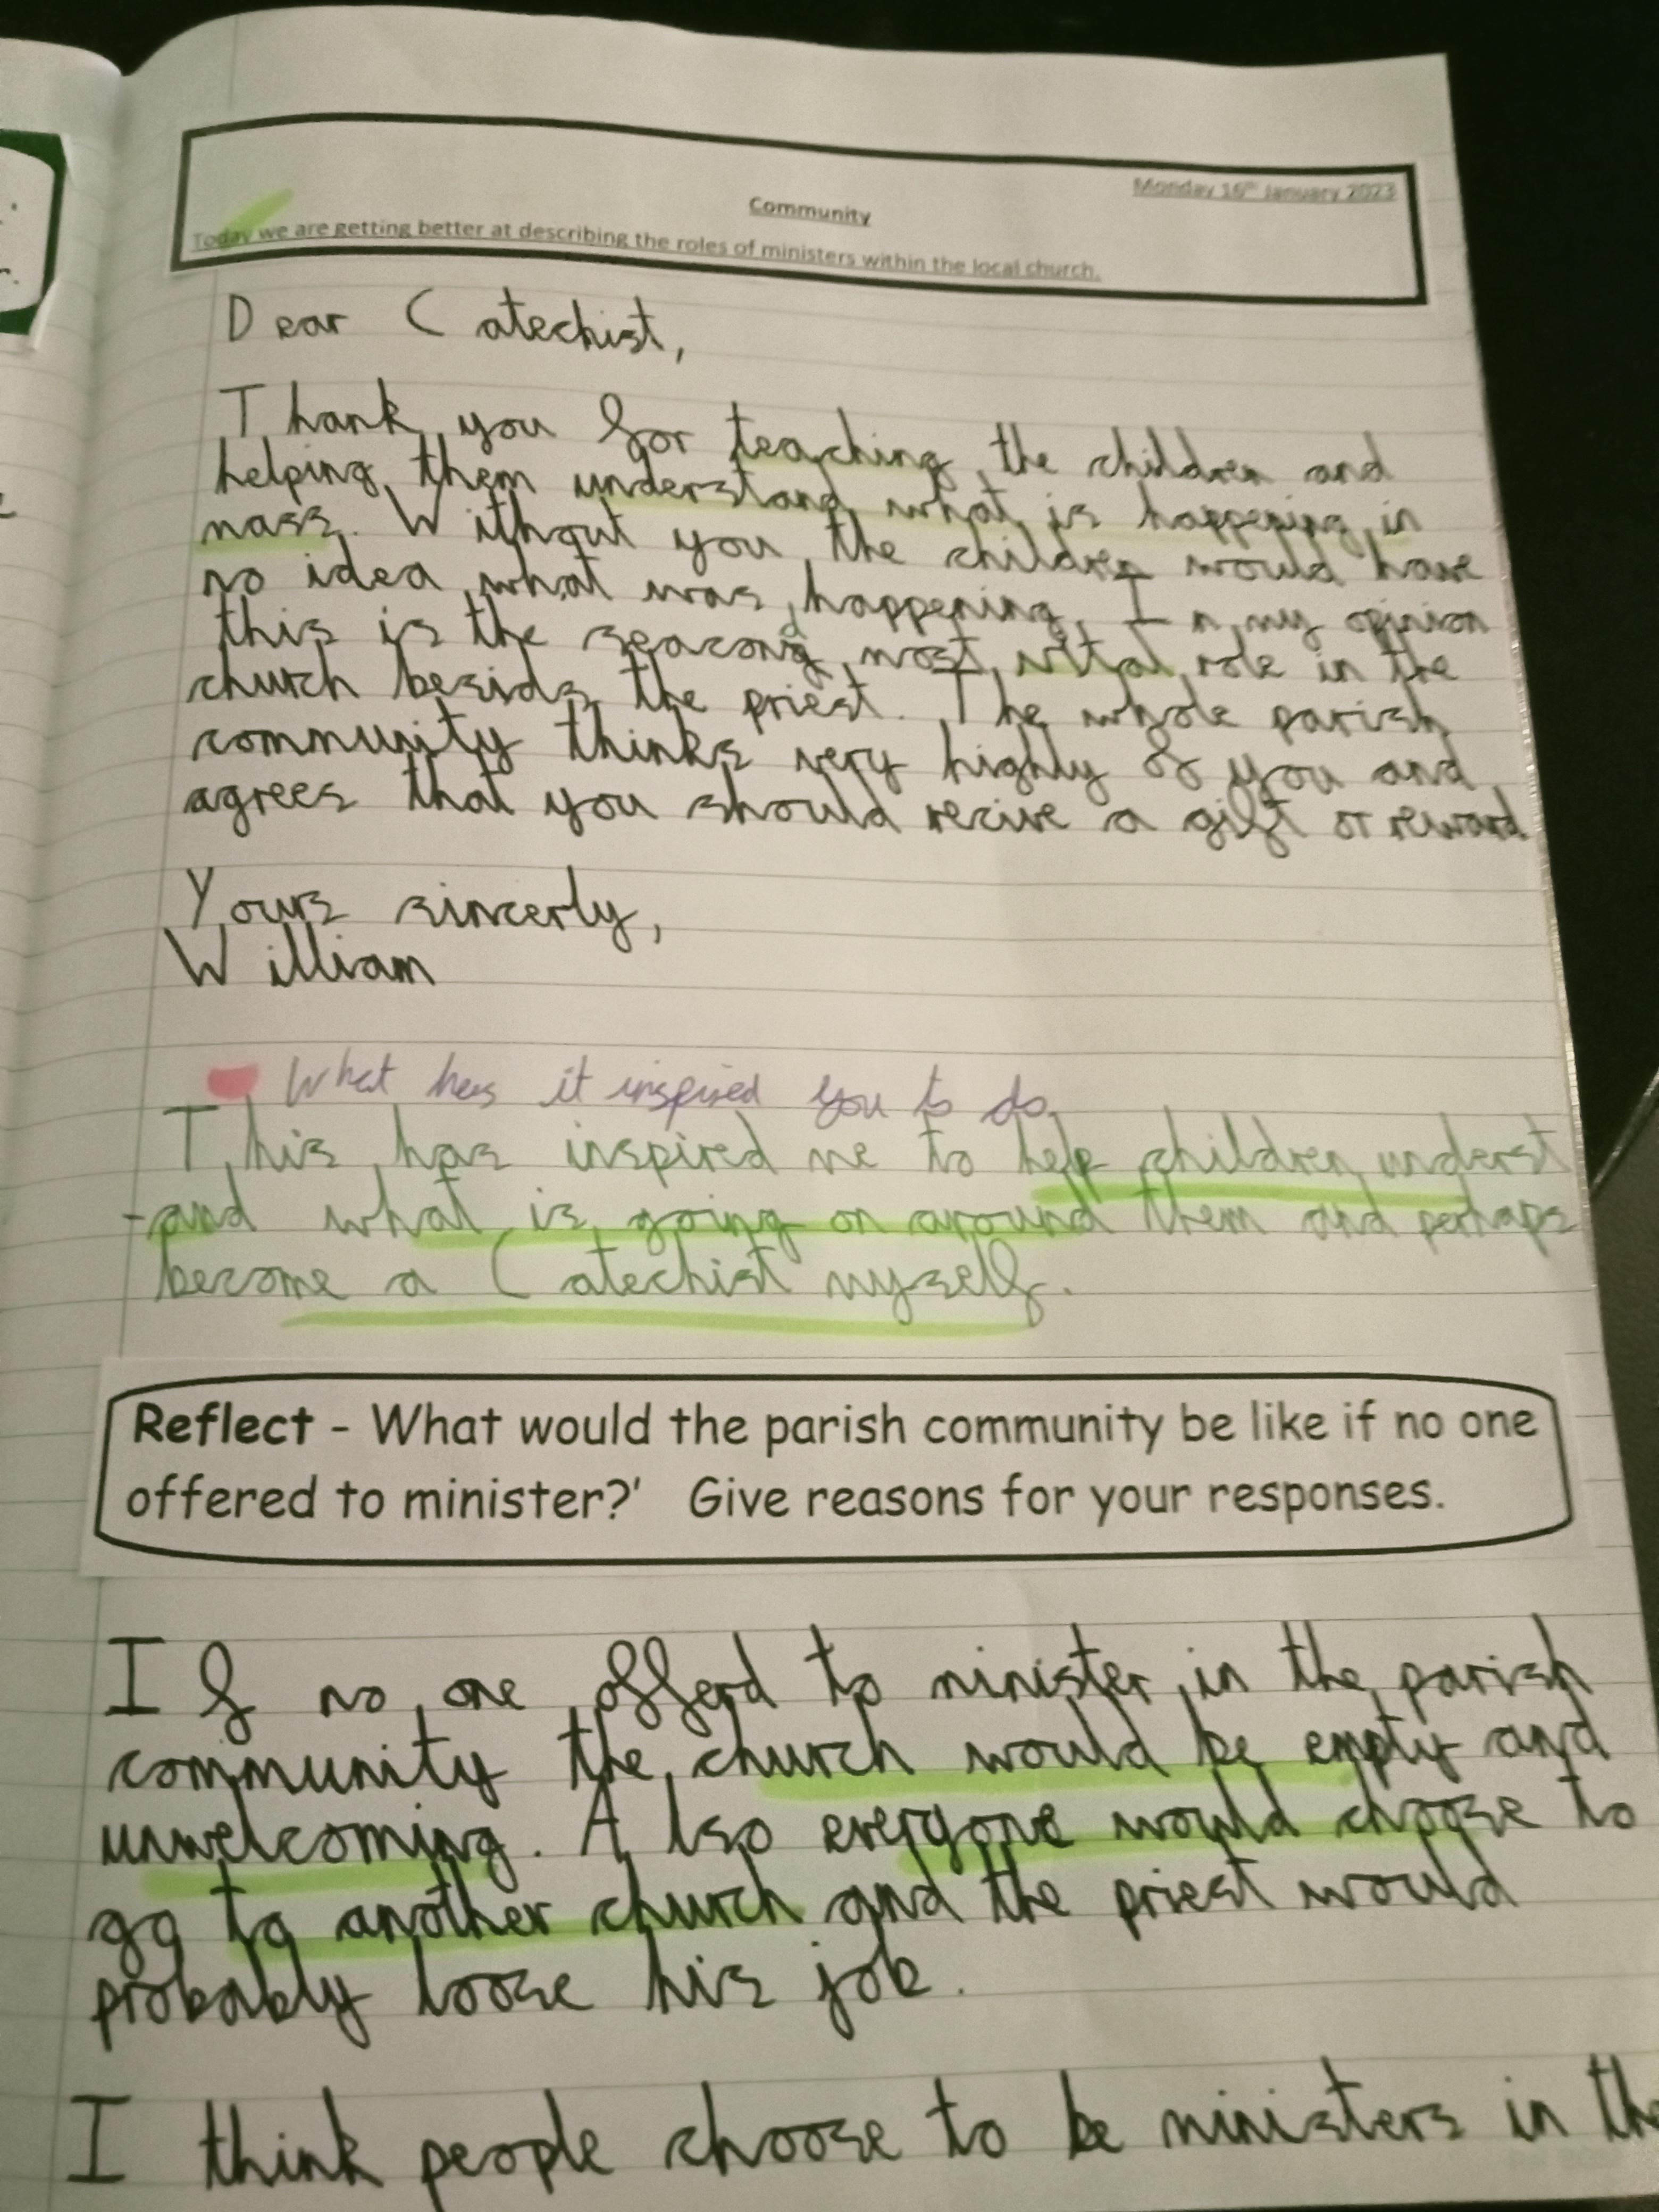 Monday 16th January 2023
Community
Today we are getting better at describing the roles of ministers within the local church.
Dear Catechist,
Thank you for teaching the children and
helping them understand what is happening in
mass. Without you the children would have
no idea what was happening. In my opinion
this is the seacond most vital role in the
church besids the priest. The whole parish
community thinks very highly of you and
agrees that you should recive a gift or reward.
Yours sincerly,
William
What has it inspired you to do.
This has inspired me to help children underst
-and what is going on around them and perhaps
become a Catechist myself.
Reflect - What would the parish community be like if no one
offered to minister?' Give reasons for your responses.
If no one offerd to minister in the parish
community the church would be empty and
unwelcoming. Also everyone would choose to
go to another church and the priest would
probably loose his job.
I think people choose to be ministers in the